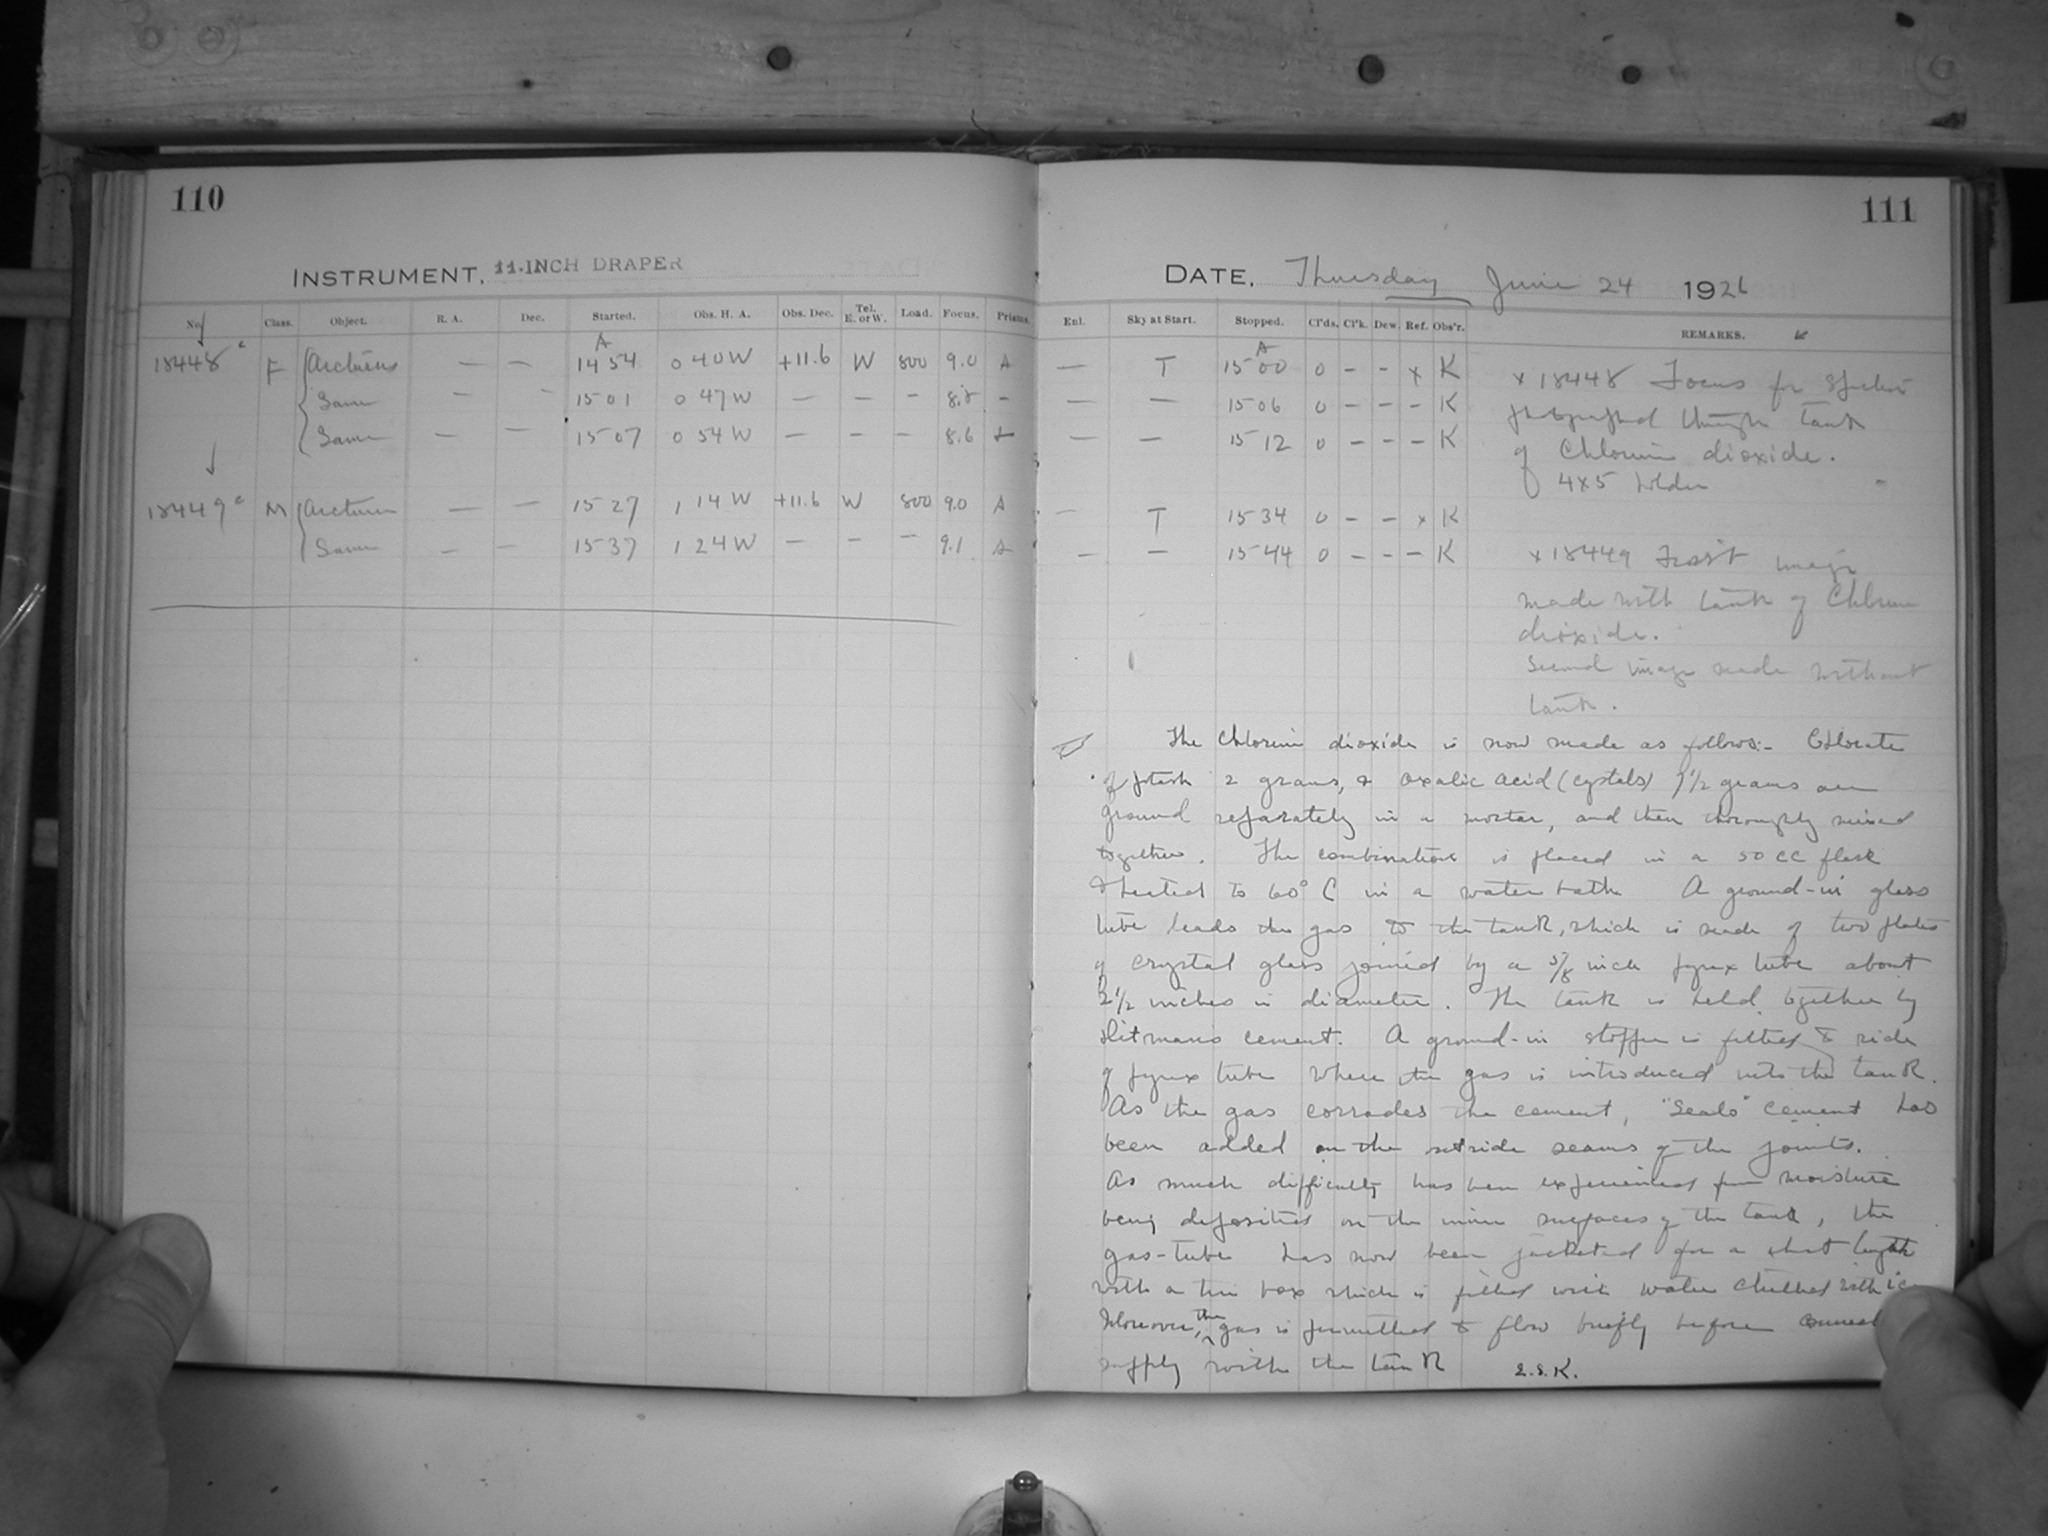 110
INSTRUMENT, 11-INCH DRAPER
No. Class. Object. R. A. Dec. Started. Obs. H. A. Obs. Dec. Tel. E. or W. Load. Focus. Prisms
18448 c F Arcturus — — A 14 54 0 40 W +11.6 W 800 9.0 A
Same — — 15 01 0 47 W — — — 8.8 —
Same — — 15 07 0 54 W — — — 8.6
18449 c M Arcturus — — 15 27 1 14 W +11.6 W 800 9.0 A
Same — — 15 37 1 24 W — — — 9.1 A
111
DATE, Thursday June 24 1926
Enl. Sky at Start. Stopped. Cl'ds. Cl'k. Dew. Ref. Obs'r. REMARKS.
— T A 15 00 0 - - x K
— — 15 06 0 - - - K
— — 15 12 0 - - - K
— T 15 34 0 - - x K
— — 15 44 0 - - - K
x 18448 Focus for
photographed through tank
of Chlorine dioxide.
4x5 holder
x 18449 First image
made with tank of Chlorine
dioxide.
Second image made without
tank.
The Chlorine dioxide is now made as follows:- Chlorate
of potash 2 grams, & oxalic acid (crystals) 7 1/2 grams are
ground separately in a mortar, and then thoroughly mixed
together. The combination is placed in a 50 cc flask
& heated to 60° C in a water bath. A ground-in glass
tube leads the gas to the tank, which is made of two plates
of crystal glass joined by a 5/8 inch pyrex tube about
2 1/2 inches in diameter. The tank is held together by
cement. A ground-in stopper is fitted to side
of pyrex tube where the gas is introduced into the tank.
As the gas corrodes the cement, "Sealo" cement has
been added on the outside seams of the joints.
As much difficulty has been experienced from moisture
being deposited on the inner surfaces of the tank, the
gas-tube has now been jacketed for a short length
with a tin box which is filled with water chilled with ice
Moreover, the gas is permitted to flow briefly before
supply with the tank E.S.K.